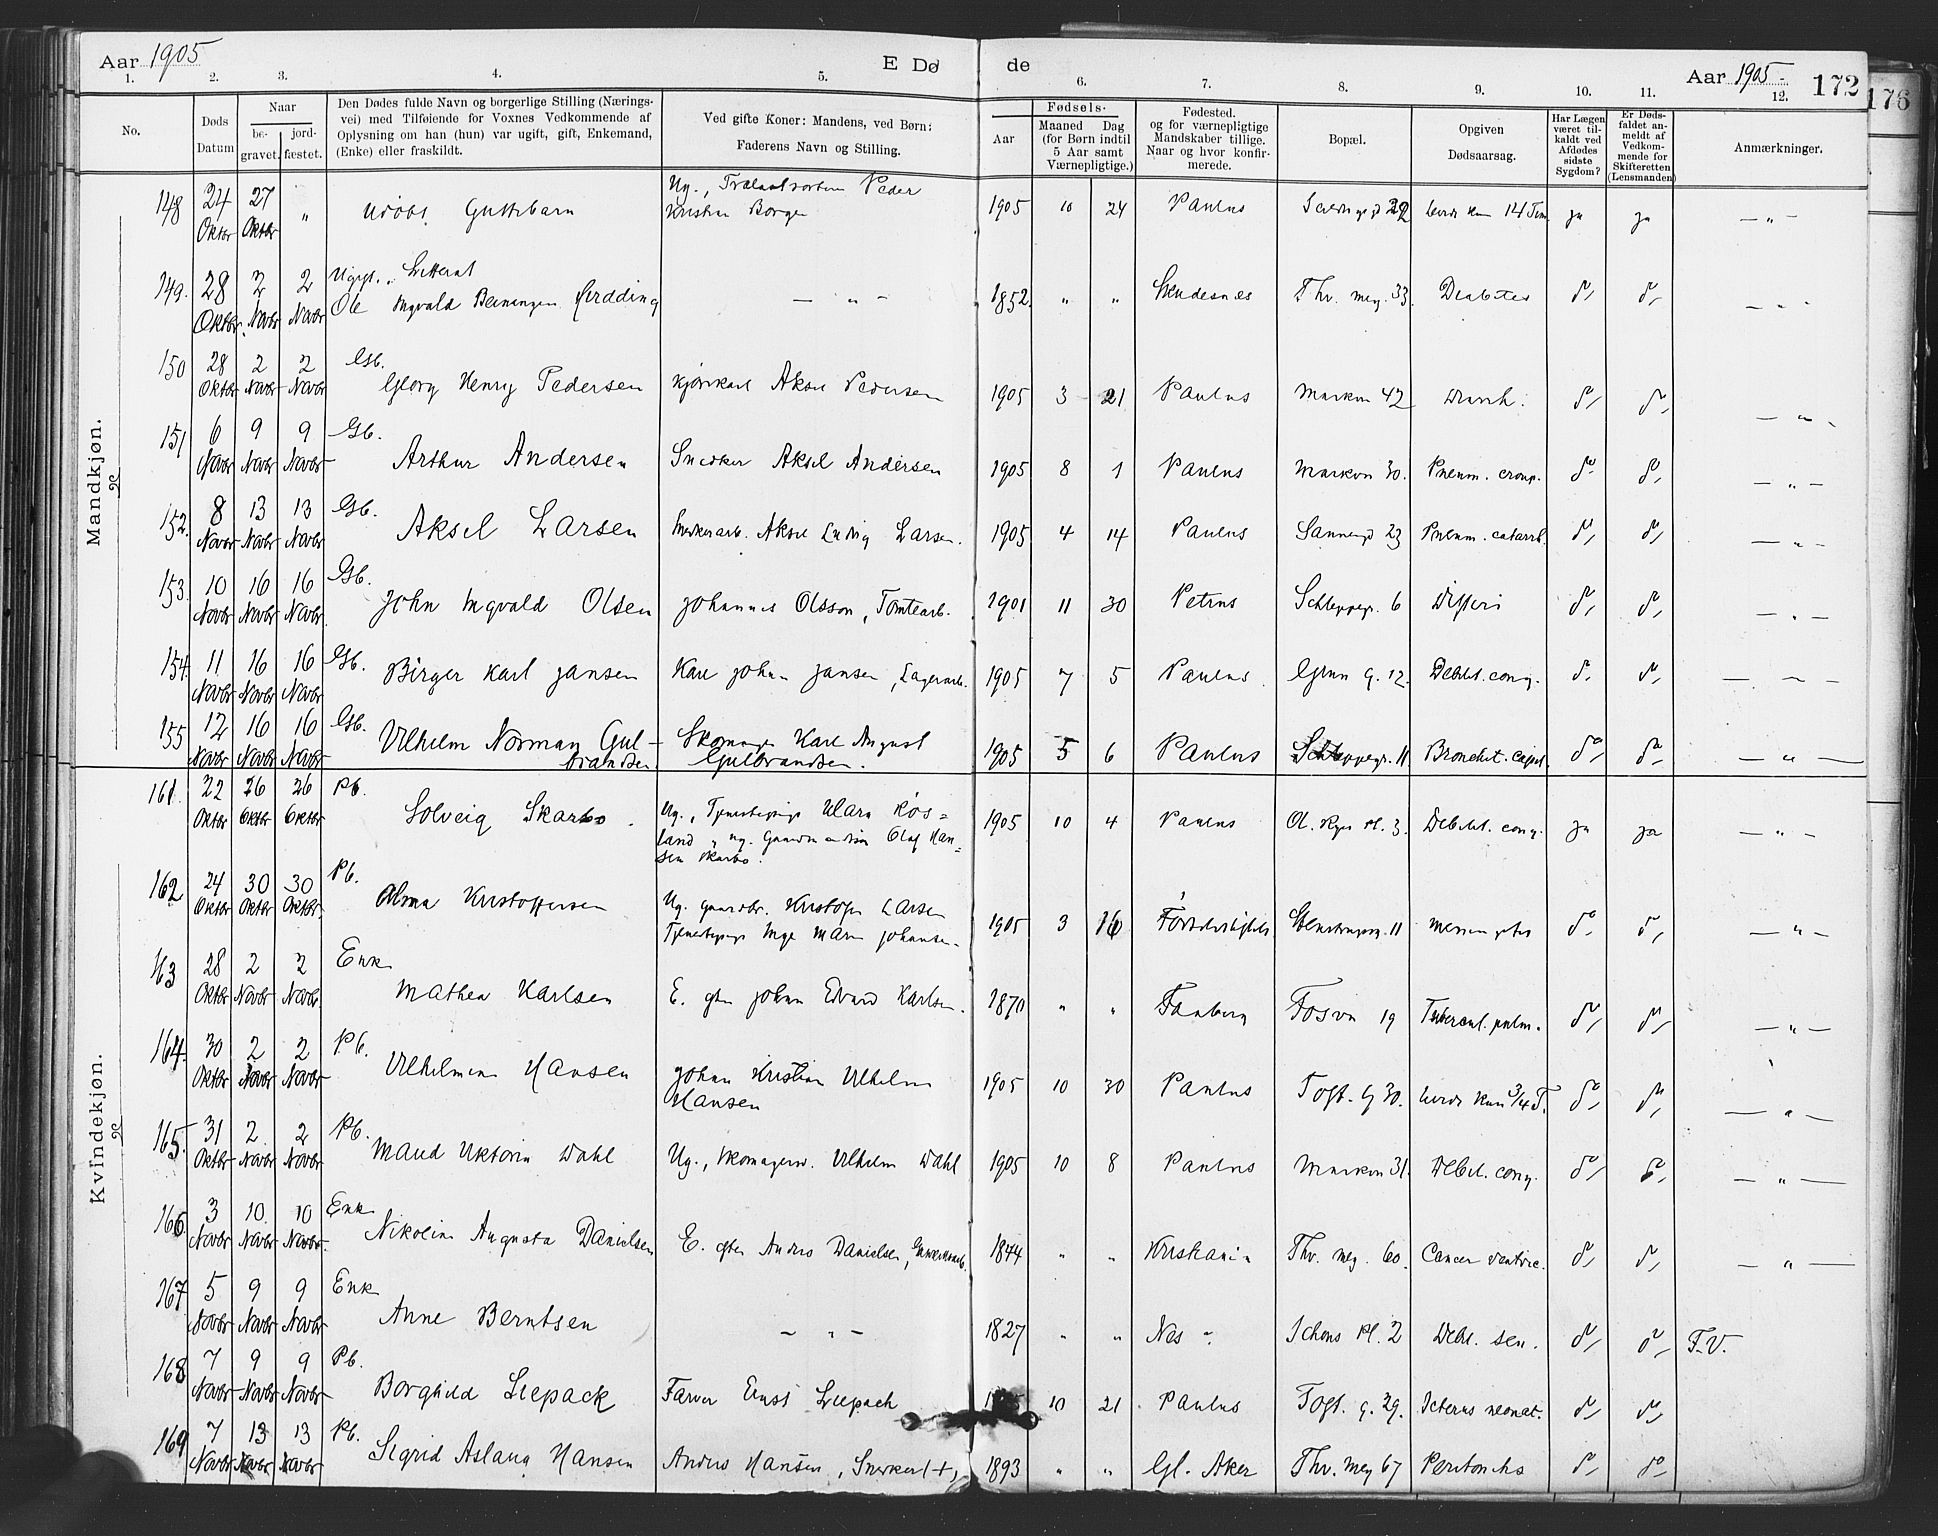 Aar 1905
E Dø de
Aar 1905 172
176
1. 2. 3. 4. 5. 6. 7. 8. 9. 10. 11. 12.
No.
Døds Datum
Naar
be-gravet.
jord-fæstet.
Den Dødes fulde Navn og borgerlige Stilling (Nærings-
vei) med Tilføiende for Voxnes Vedkommende af
Oplysning om han (hun) var ugift, gift, Enkemand,
(Enke) eller fraskildt.
Ved gifte Koner: Mandens, ved Børn:
Faderens Navn og Stilling.
Fødsels-
Aar
Maaned Dag
(for Børn indtil
5 Aar samt
Værnepligtige.)
Fødested.
og for værnepligtige
Mandskaber tillige.
Naar og hvor konfir-
merede.
Bopæl.
Opgiven
Dødsaarsag.
Har Lægen
været til-
kaldt ved
Afdødes
sidste
Sygdom?
Er Døds-
faldet an-
meldt af
Vedkom-
mende for
Skifteretten
(Lensmanden)
Anmærkninger.
Mandkjøn.
148 24 Oktbr 27 Oktbr " Udøbt Guttebarn Ug., Peder
Kristian Borgen 1905 10 24 Paulus 22 14 Tim. ja ja — " —
149. 28 Oktbr 2 Novbr 2 Novbr Ugift.
Ole Ingvald — " — 1852. " " Skudesnes Thv. mey. 33. Diabetes do do — " —
150 28 Oktbr 2 Novbr 2 Novbr Gb.
Georg Henry Pedersen Kjørekarl Aksel Pedersen 1905 3 21 Paulus Markvn 42 Diarrh. do do — " —
151 6 Novbr 9 Novbr 9 Novbr Gb.
Arthur Andersen Snedker Aksel Andersen 1905 8 1 Paulus Markvn 30. Pneum. croup. do do — " —
152. 8 Novbr 13 Novbr 13 Novbr Gb.
Aksel Larsen Aksel Ludvig Larsen. 1905 4 14 Paulus Sannergd 23 Pneum. catarrh. do do — " —
153. 10 Novbr 16 Novbr 16 Novbr Gb.
John Ingvald Olsen Johannes Olsson, Tomtearb. 1901 11 30 Petrus Schleppegr. 6 Difteri do do — " —
154. 11 Novbr 16 Novbr 16 Novbr Gb.
Birger Karl Jansen Karl Johan Jansen, Lagerarb. 1905 7 5 Paulus Grün g. 12. Debil. cong. do do — " —
155 12 Novbr 16 Novbr 16 Novbr Gb.
Vilhelm Norman Gul-
brandsen Skomager Karl August
Gulbrandsen. 1905 5 6 Paulus Schleppegr. 11 Bronchit. capil. do do — " —
Kvindekjøn.
161. 22 Oktbr 26 Oktbr 26 Oktbr Pb.
Solveig Skarbo. Ug., Tjenestepige Klara Røs=
land, ug. Olaf Han=
sen Skarbo. 1905 10 4 Paulus O. Ryes Pl. 3. Debilit. cong. ja ja — " —
162 24 Oktbr 30 Oktbr 30 Oktbr Pb.
Alma Kristoffersen Ug. Kristofer Larsen
Tjenestepige Inga Marie Johansen. 1905 3 16 Fødselsstiftels Stenstrupsg. 11 do do — " —
163 28 Oktbr 2 Novbr 2 Novbr Enke
Mathea Karlsen E. efter Johan Edvard Karlsen. 1870 " " Faaberg Fosvn 19 Tubercul. pulm. do do — " —
164. 30 Oktbr 2 Novbr 2 Novbr Pb.
Vilhelmine Hansen Johan Kristian Vilhelm
Hansen 1905 10 30 Paulus Toft. G 30. levede kun 3/4 T. do do — " —
165. 31 Oktbr 2 Novbr 2 Novbr Pb.
Maud Viktoria Dahl Ug., Skomagersv. Vilhelm Dahl 1905 10 8 Paulus Markvn 31. Debil. cong. do do — " —
166 3 Novbr 10 Novbr 10 Novbr Enke
Nikoline Augusta Danielsen E. efter Anders Danielsen, 1844 " " Kristiania Thv. mey. 60. Cancer ventric. do do — " —
167 5 Novbr 9 Novbr 9 Novbr Enke
Anne Berntsen — " — 1827 " " Nes Schous Pl. 2 Debil. sen. do do F.V.
168 7 Novbr 9 Novbr 9 Novbr Pb.
Borghild Liepack Farver Ernst Liepack 10 21 Paulus Toft. g. 29. Icterus neonat. do do
169 7 Novbr 13 Novbr 13 Novbr Pb.
Sigrid Aslaug Hansen Anders Hansen, Snedker (+) 1893 " " Gl. Aker Thv. mey 67 Peritonitis do do